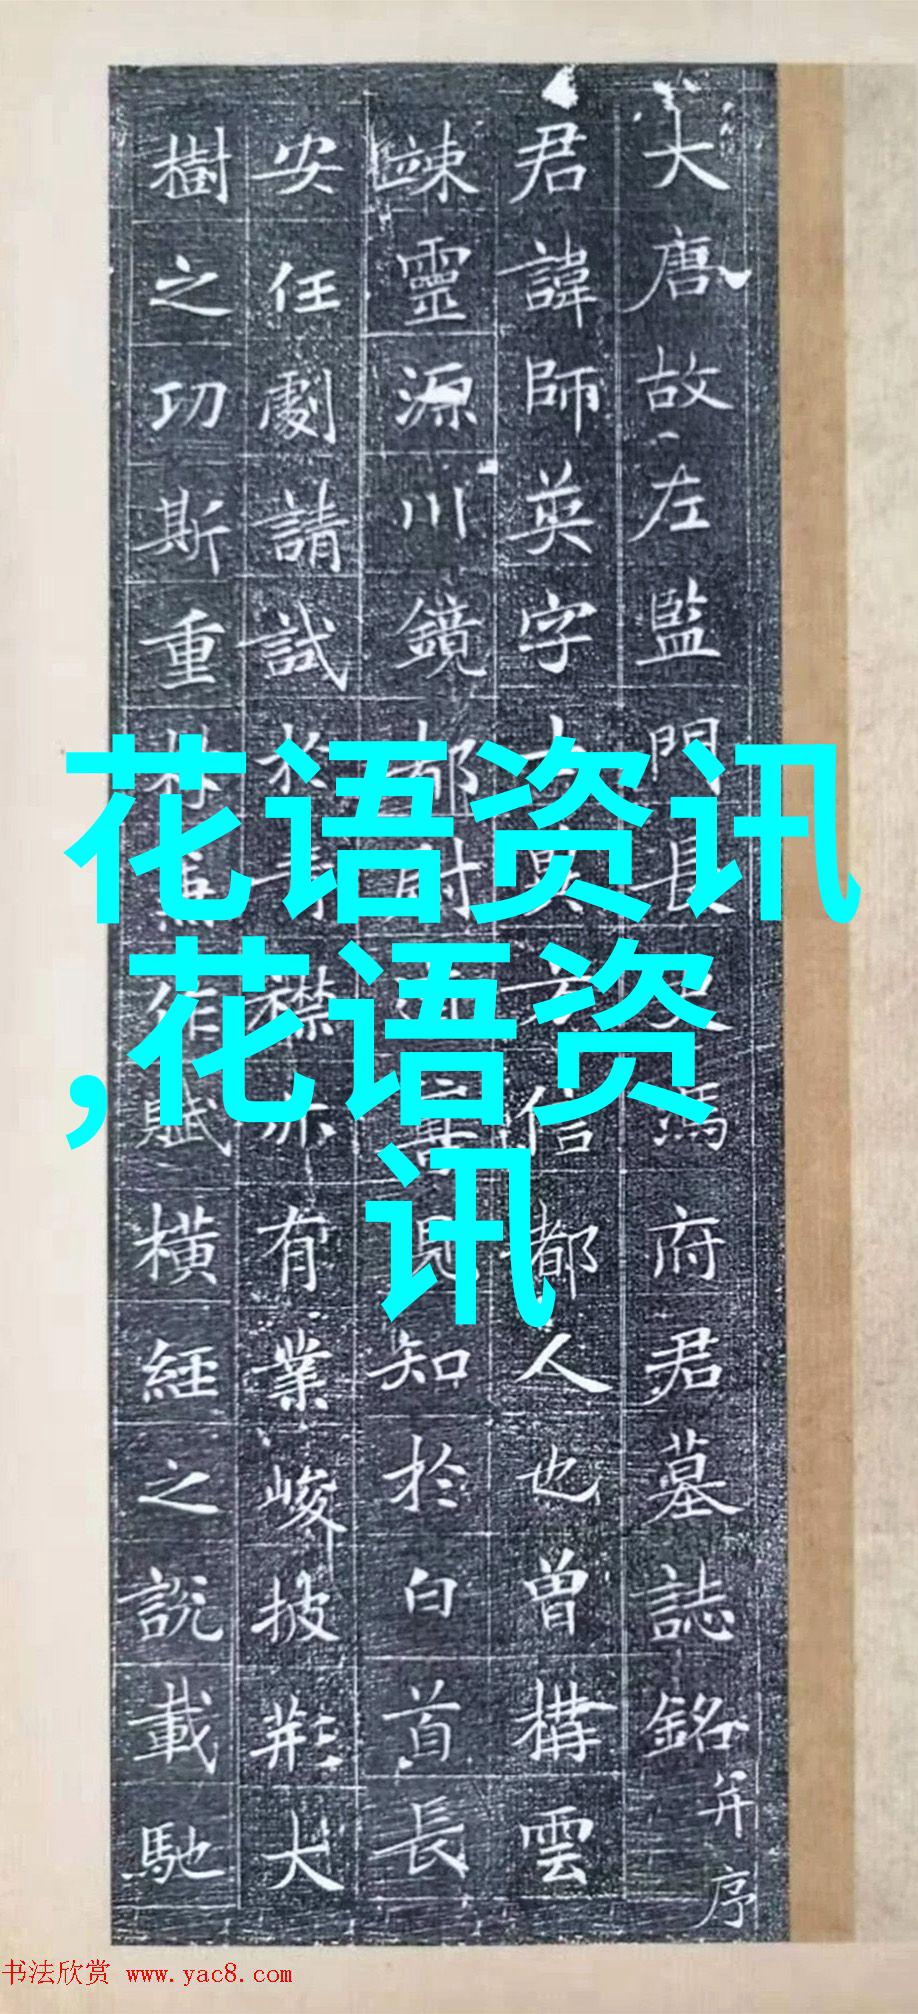 大唐故左監門長史馮府君墓誌銘并序
君諱師英字信都人也曾構雲
竦靈源川鏡都尉善見知於白首長
安任劇請試於襟亦有業峻披荊大
樹之功斯重作賦橫經之說載馳
花语资讯
,花语资
讯
书法欣赏 www.yac8.com